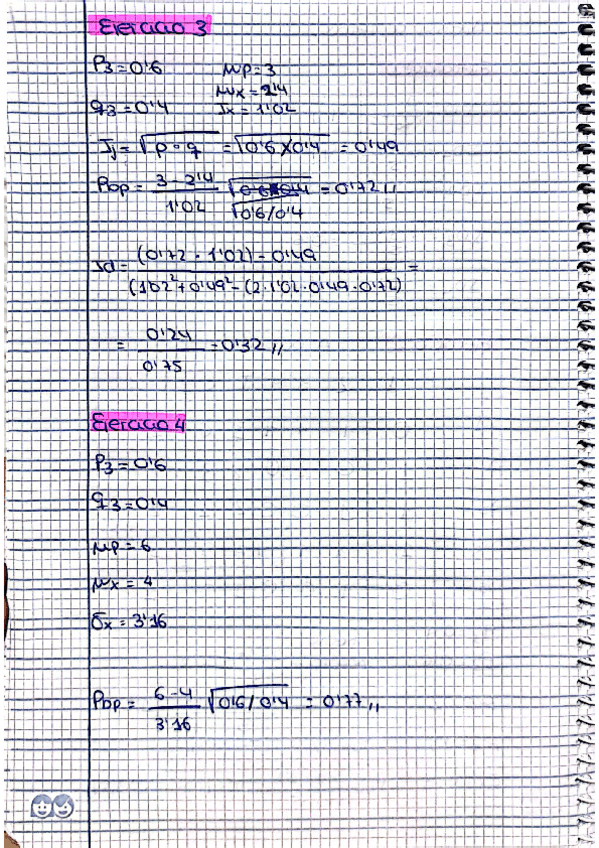 Ejercicio 3
P3 = 0'6 μp = 3
μx = 2'4
q3 = 0'4 σx = 1'02
σj = √p · q = √0'6 x 0'4 = 0'49
Pbp = 3 - 2'4 / 1'02 √0'6/0'4 = 0'72 ,,
σd = (0'72 · 1'02) - 0'49 / (1'02² + 0'49² - (2 · 1'02 · 0'49 · 0'72) =
= 0'24 / 0'75 = 0'32 ,,
Ejercicio 4
P3 = 0'6
q3 = 0'4
μp = 6
μx = 4
σx = 3'16
Pbp = 6 - 4 / 3'16 √0'6/0'4 = 0'77 ,,